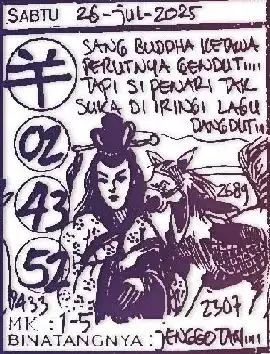 SABTU 26-jul-2025
羊
SANG BUDDHA KETAWA
PERUTNYA GENDUT!!!!
TAPI SI PENARI TAK
SUKA DI IRINGI LAGU
DANGDUT!!!
02
43
52
2689
9433
2307
MK : 1-5
BINATANGNYA : JENGGOTAN!!!!